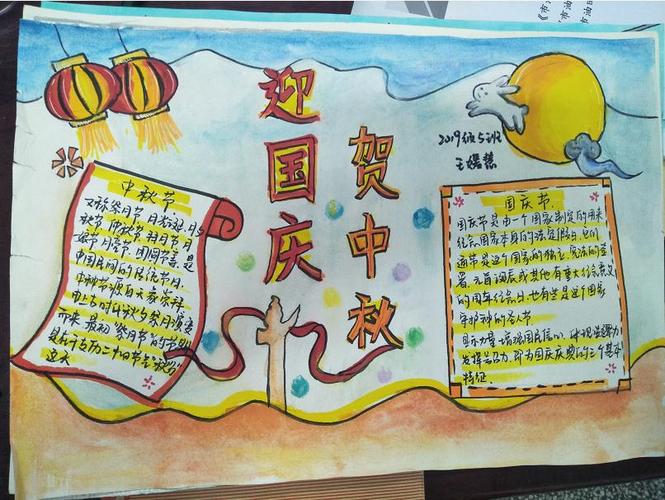 迎国庆
贺中秋
2019级5班
中秋节
又称祭月节、月光诞、月夕
秋节、仲秋节、拜月节、月
娘节、月亮节、团圆节等，是
中国民间的传统节日。
中秋节源自天象崇拜
由上古时代秋夕祭月演变
而来。最初“祭月节”的节期
是在干支历二十四节气“秋分”
这天
国庆节
国庆节是由一个国家制定的用来
纪念国家本身的法定假日。他们
通常是这个国家的独立、宪法的签
署、元首诞辰或其他有重大纪念意义
的周年纪念日，也有些是这个国家
守护神的圣人节
显示力量、增强国民信心，体现凝聚力，
发挥号召力，即为国庆庆典的三个基本
特征.